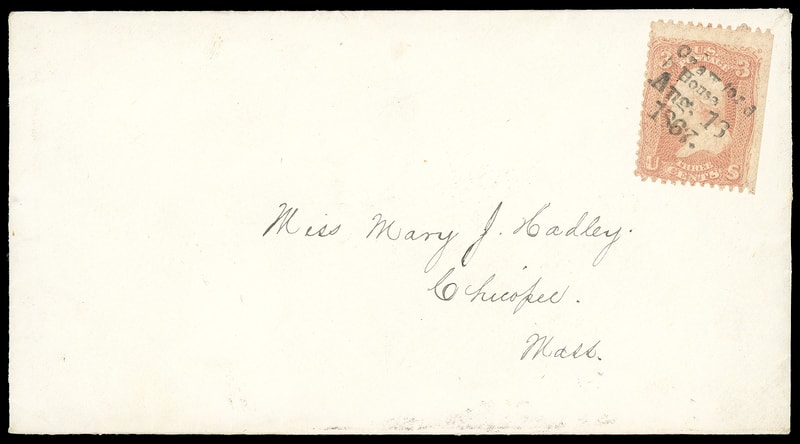 Crawford
House
AUG. 13
1867.
3
3
U
S
THREE
CENTS
Miss Mary J. Hadley.
Chicopee.
Mass.